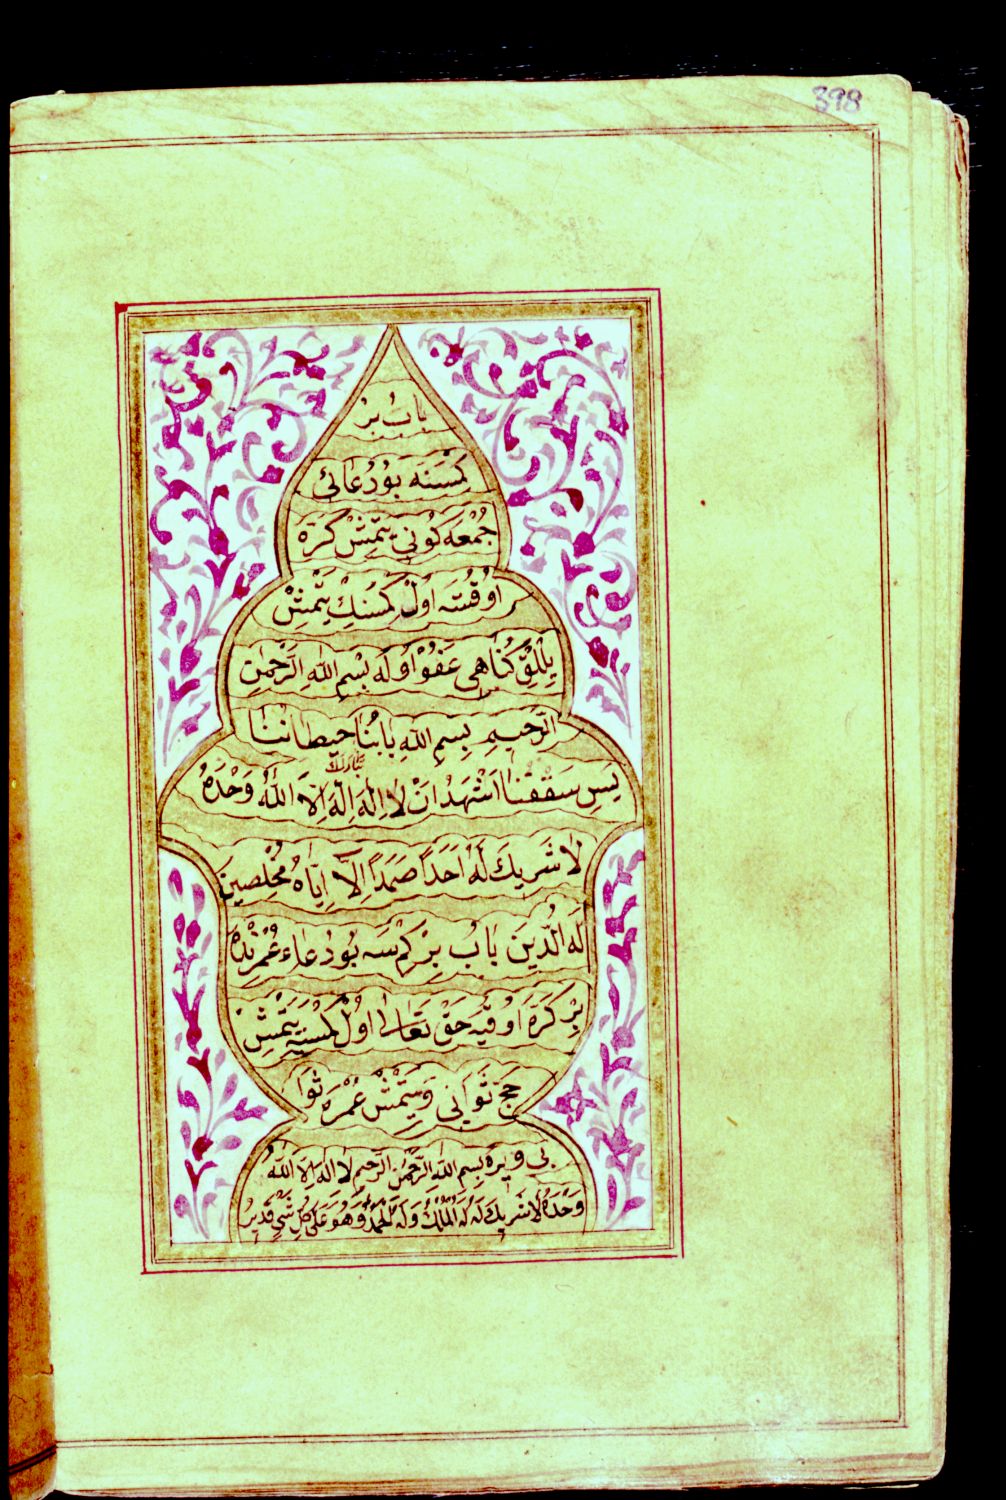 398
باب بر
كمسنه بو دعائى
جمعه كونى يتمش كره
اوقسه اول كمسنك يتمش
ييللق كناهى عفو اوله بسم الله الرحمن
الرحيم بسم الله بابنا حيطاننا
تبارك
يس سقفنا اشهد ان لا اله اله الا الله وحده
لا شريك له احدا صمدا الا اياه مخلصين
له الدين باب بر كمسه بو دعاء عمرنده
بر كره اوقيه حق تعالى اول كمسنيه يتمش
حج ثوابى ويتمش عمره ثوا
بى ويره بسم الله الرحمن الرحيم لا اله الا الله
وحده لا شريك له له الملك وله الحمد وهو على كل شئ قدير